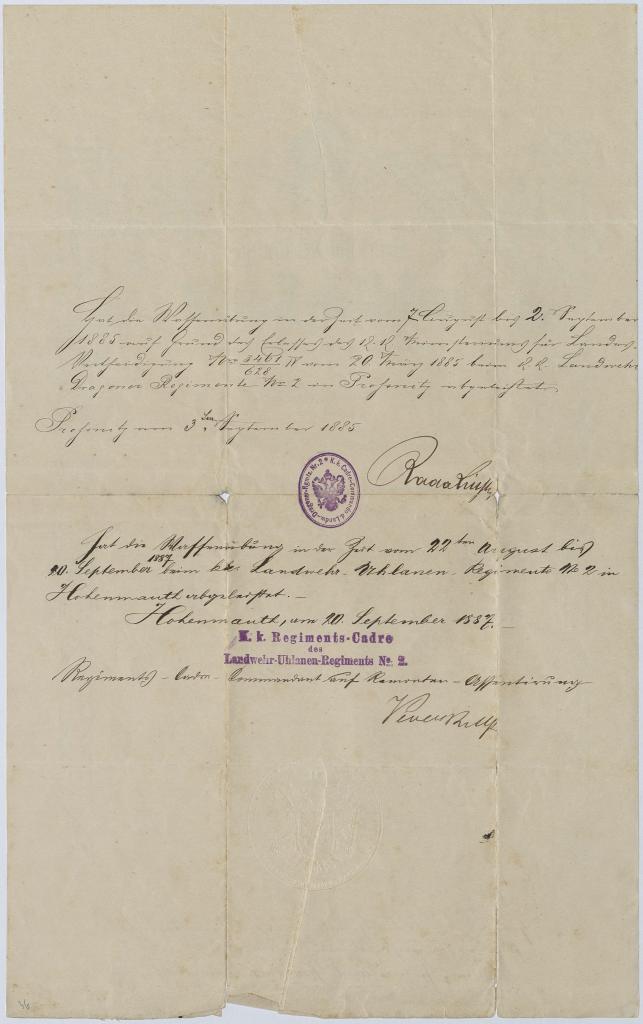 Hat die Waffenübung in der Zeit vom 7 August bis 2. September
1885 auf Grund des Erlasses des k. k. Ministeriums für Landes-
Vertheidigung No 3461/628 IV vom 20 März 1885 beim k. k. Landwehr
Dragoner Regimente No 2 in Prossnitz abgeleistet.
Prossnitz am 3ten September 1885
K. k. Cadre-Commando d. Landw.-Dragoner-Rgmts. Nr. 2
Hat die Waffenübung in der Zeit vom 22ten August bis
20. September 1887 beim k. k. Landwehr-Uhlanen-Regimente No 2 in
Hohenmauth abgeleistet. —
Hohenmauth, am 20. September 1887. —
K. k. Regiments-Cadre
des
Landwehr-Uhlanen-Regiments No. 2.
Regiments-Cadre-Commandant auf Remonten-Assentirung